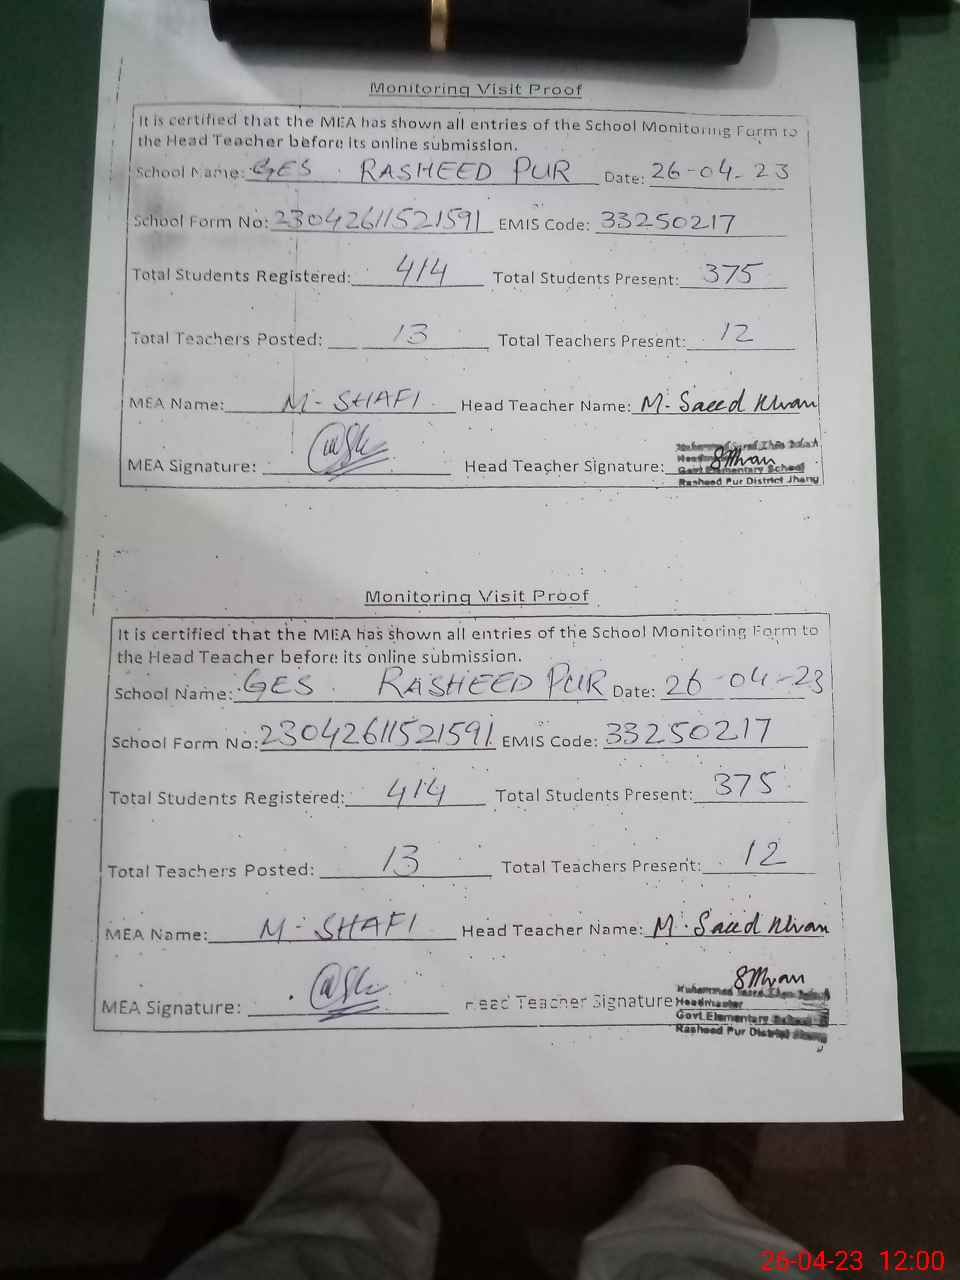 Monitoring Visit Proof
It is certified that the MEA has shown all entries of the School Monitoring Form to
the Head Teacher before its online submission.
School Name: GES . RASHEED PUR Date: 26-04-23
School Form No: 23042611521591 EMIS Code: 33250217
Total Students Registered: 414 Total Students Present: 375
Total Teachers Posted: 13 Total Teachers Present: 12
MEA Name: M-SHAFI. Head Teacher Name: M. Saeed Khan
MEA Signature: Head Teacher Signature:
Govt Elementary School
Rasheed Pur District Jhang
Monitoring Visit Proof
It is certified that the MEA has shown all entries of the School Monitoring Form to
the Head Teacher before its online submission.
School Name: GES . RASHEED PUR Date: 26-04-23
School Form No: 23042611521591 EMIS Code: 33250217
Total Students Registered: 414 Total Students Present: 375
Total Teachers Posted: 13 Total Teachers Present: 12
MEA Name: M-SHAFI Head Teacher Name: M. Saeed Khan
MEA Signature: Head Teacher Signature
Headmaster
Govt Elementary School
Rasheed Pur District Jhang
26-04-23 12:00